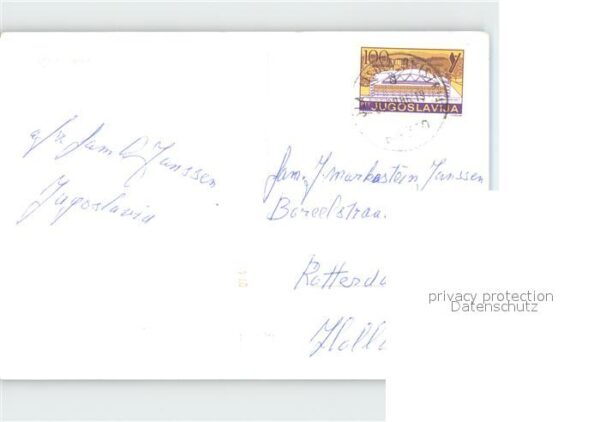 100
JUGOSLAVIJA
Janssen
Jugoslavia
Fam. J. Markestein, Janssen
Boreelstraa
Rotterda
Holl
privacy protection
Datenschutz